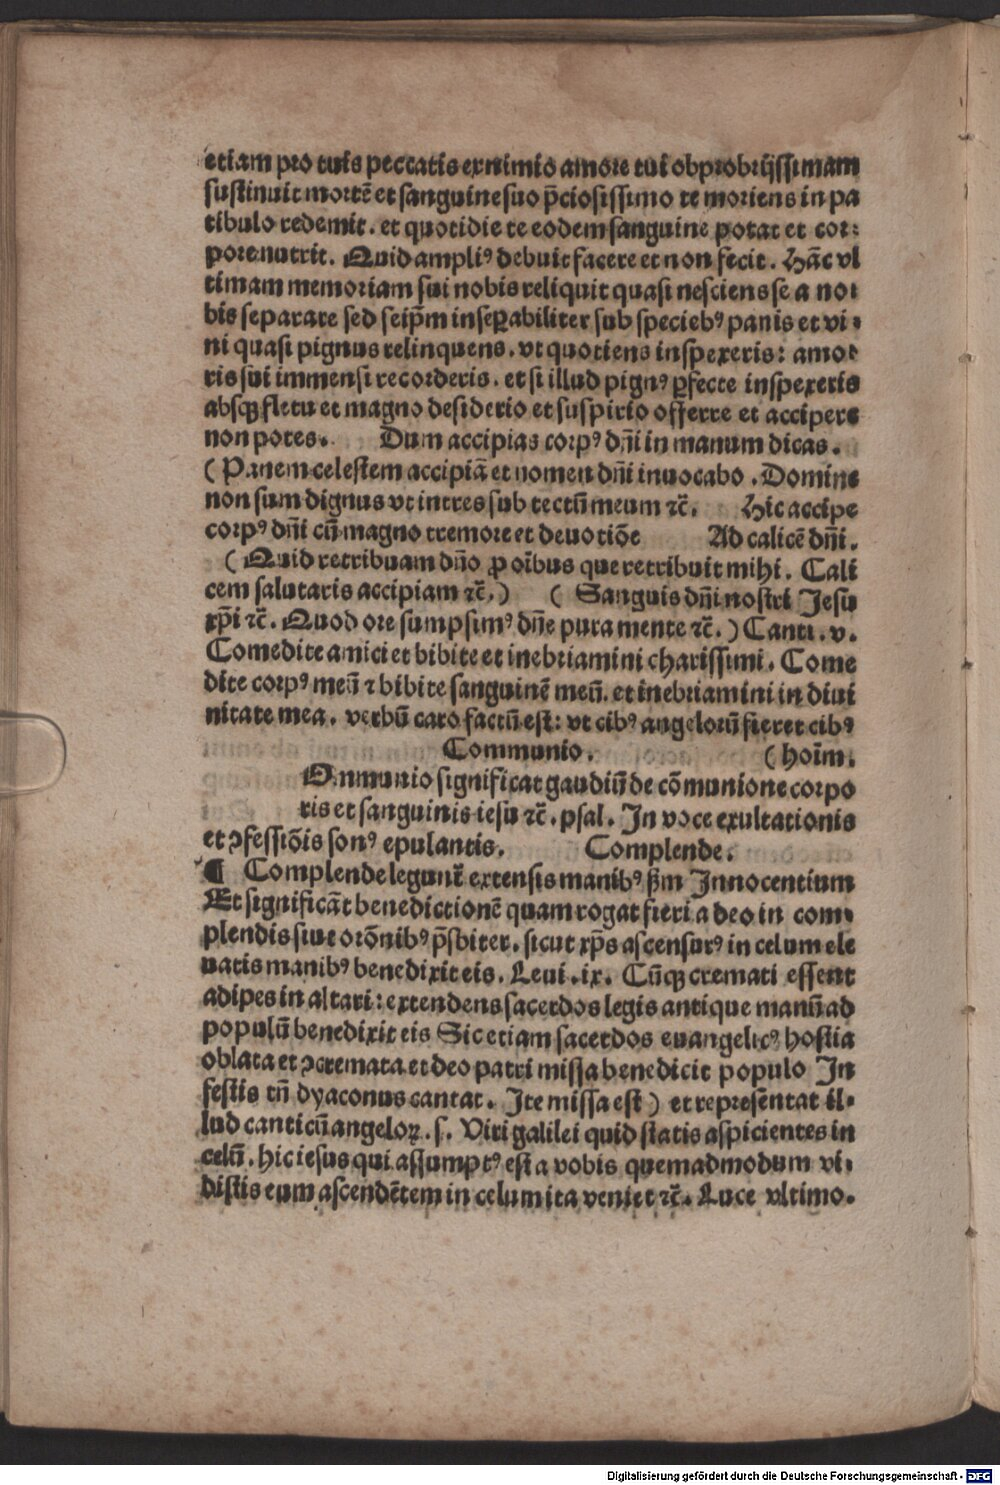 etiam pro tuis peccatis ex nimio amore tui obprobrijssimam
sustinuit mortē et sanguine suo p̄ciosissimo te moriens in pa
tibulo redemit. et quotidie te eodem sanguine potat et cor⸗
pore nutrit. Quid ampliꝰ debuit facere et non fecit. Hāc vl
timam memoriam sui nobis reliquit quasi nesciens se a no⸗
bis separare sed seip̄m insep̱abiliter sub speciebꝰ panis et vi⸗
ni quasi pignus relinquens. vt quotiens inspexeris: amo⸗
ris sui immensi recorderis. et si illud pignꝰ ꝑfecte inspexeris
absqꝫ fletu et magno desiderio et suspirio offerre et accipere
non potes. Dum accipias corpꝰ dn̄i in manum dicas.
( Panem celestem accipiā et nomen dn̄i inuocabo. Domine
non sum dignus vt intres sub tectū meum ⁊c̄. Hic accipe
corpꝰ dn̄i cū magno tremore et deuotiōe Ad calicē dn̄i.
( Quid retribuam dn̄o ꝓ oībus que retribuit mihi. Cali
cem salutaris accipiam ⁊c̄.) ( Sanguis dn̄i nostri Jesu
xp̄i ⁊c̄. Quod ore sumpsimꝰ dn̄e pura mente ⁊c̄. ) Canti. v.
Comedite amici et bibite et inebriamini charissimi. Come
dite corpꝰ meū ⁊ bibite sanguinē meū. et inebriamini in diui
nitate mea. verbū caro factū est: vt cibꝰ angelorū fieret cibꝰ
Communio. ( hoīm.
Ommunio significat gaudiū de cōmunione corpo
ris et sanguinis iesu ⁊c̄. psal. In voce exultationis
et ꝯfessiōis sonꝰ epulantis. Complende.
¶ Complende legunt̄ extensis manibꝰ ẜm Innocentium
Et significāt benedictionē quam rogat fieri a deo in com⸗
plendis siue orōnibꝰ p̄sbiter. sicut xp̄s ascensurꝰ in celum ele
uatis manibꝰ benedixit eis. Leui. ix. Cūqꝫ cremati essent
adipes in altari: extendens sacerdos legis antique manū ad
populū benedixit eis Sic etiam sacerdos euangelicꝰ hostia
oblata et ꝯcremata et deo patri missa benedicit populo In
festis tn̄ dyaconus cantat. Ite missa est ) et represētat il⸗
lud canticū angeloꝝ. s. Viri galilei quid statis aspicientes in
celū. hic iesus qui assumptꝰ est a vobis quemadmodum vi⸗
distis eum ascendētem in celum ita veniet ⁊c̄. Luce vltimo.
Digitalisierung gefördert durch die Deutsche Forschungsgemeinschaft - DFG